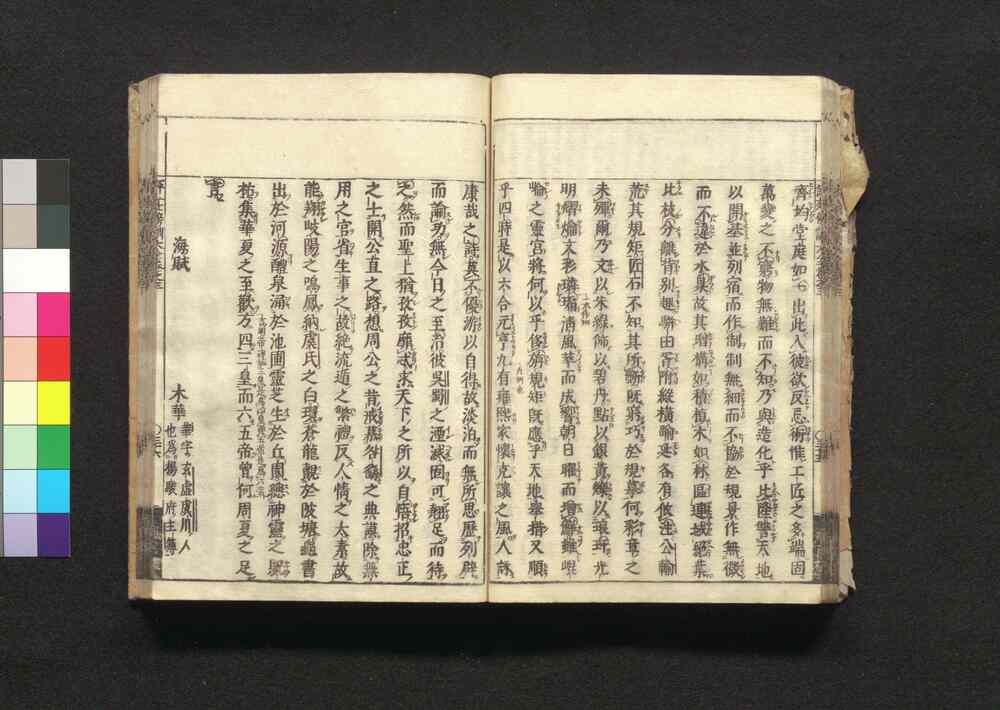 齊均堂庭如一出此入彼欲反忘術惟工匠之多端固
萬變之不窮物無難而不知乃與造化乎比隆讐天地
以開基並列宿而作制制無細而不協於規景作無微
而不違於水臬故其增構如積植木如林區連域絕葉
比枝分離背別趣駢田胥附縱橫踰延各有攸注公輸
荒其規矩匠石不知其所斲既窮巧於規摹何彩章之
未殫爾乃文以朱綠飾以碧丹點以銀黃爍以琅玕光
明熠爚文彩璘班清風萃而成響朝日曜而增鮮雖崐
崘之靈宮將何以乎侈旃規矩既應乎天地舉措又順
乎四時是以六合元亨九有雍熙家懷克讓之風人詠
康哉之詩莫不優游以自得故淡泊而無所思歷列辟
而論功無今日之至治彼吳蜀之湮滅固可翹足而待
之然而聖上猶孜孜靡忒求天下之所以自悟招忠正
之士開公直之路想周公之昔戒慕咎繇之典謨除無
用之官省生事之故絕流遁之繁禮反人情之太素故
能翔岐陽之鳴鳳納虞氏之白環蒼龍覿於陂塘龜書
出於河源醴泉涌於池圃靈芝生於丘園總神靈之貺
祐集華夏之至歡方四三皇而六五帝曾何周夏之足
言
海賦
木華
華字玄虛廣川人
也爲楊駿府主簿